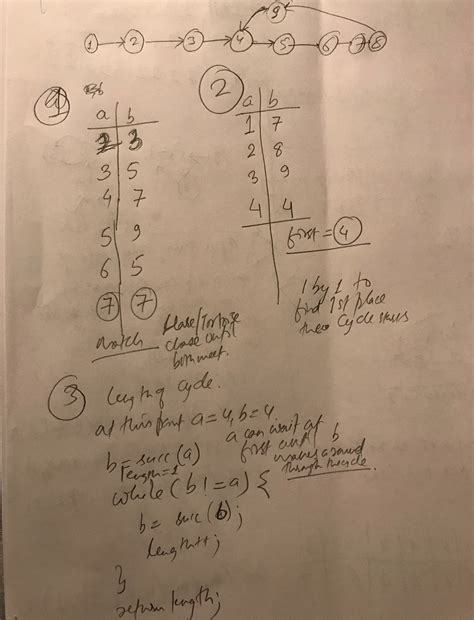 9
1 2 3 4 5 6 7 8
1
a b
2 3
3 5
4 7
5 9
6 5
7 7
match
Hare/Tortoise
chase until
both meet.
2
a b
1 7
2 8
3 9
4 4
first = 4
1 by 1 to
find 1st place
Cycle starts
3
length of cycle.
at this point a=4, b=4.
a can wait at
first until b
moves around
through the cycle.
b = succ(a)
length=1
while (b != a) {
b = succ(b);
length++;
}
return length;